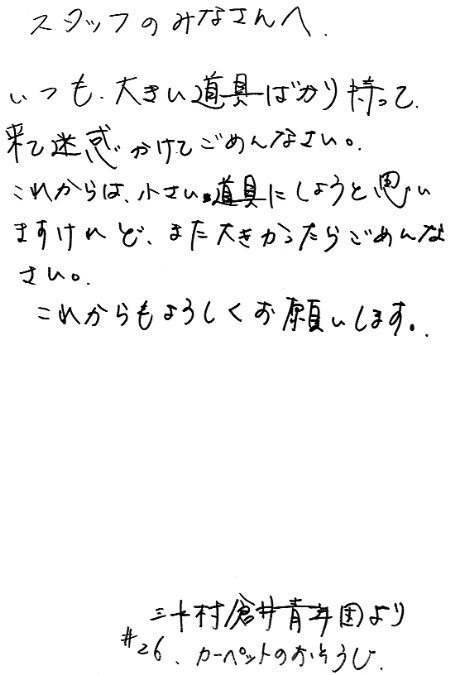 スタッフのみなさんへ.
いつも、大きい道具ばかり持って
来て迷惑かけてごめんなさい。
これからは、小さい道具にしようと思い
ますけれど、また大きかったらごめんな
さい。
これからもよろしくお願いします。
三十村倉井青年団より
#26、カーペットのおそうじ.